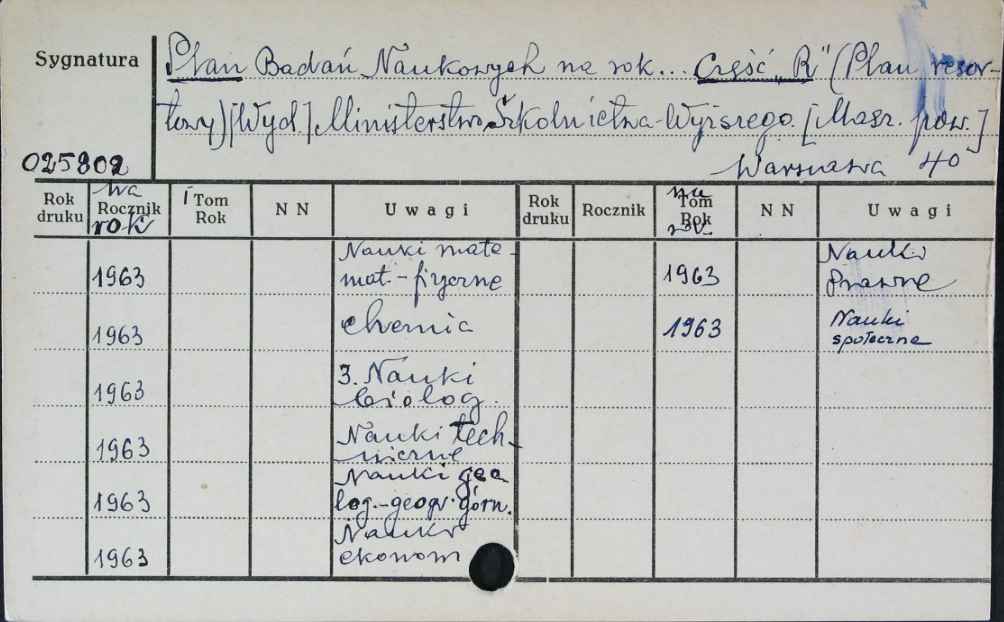 Sygnatura
Plan Badań Naukowych na rok... Część „R" (Plan resor-
towy) [Wyd.] Ministerstwo Szkolnictwa Wyższego. [Masz. pow.]
025802
Warszawa 40
Rok druku Na Rocznik rok Tom Rok NN Uwagi Rok druku Rocznik na Tom Rok rok NN Uwagi
1963 Nauki mate-
mat.-fizyczne
1963 Nauki
prawne
1963 chemia
1963 Nauki
społeczne
1963 3. Nauki
biolog.
1963 Nauki tech-
niczne
1963 Nauki geo
log.-geogr. górn.
1963 Nauki
ekonom